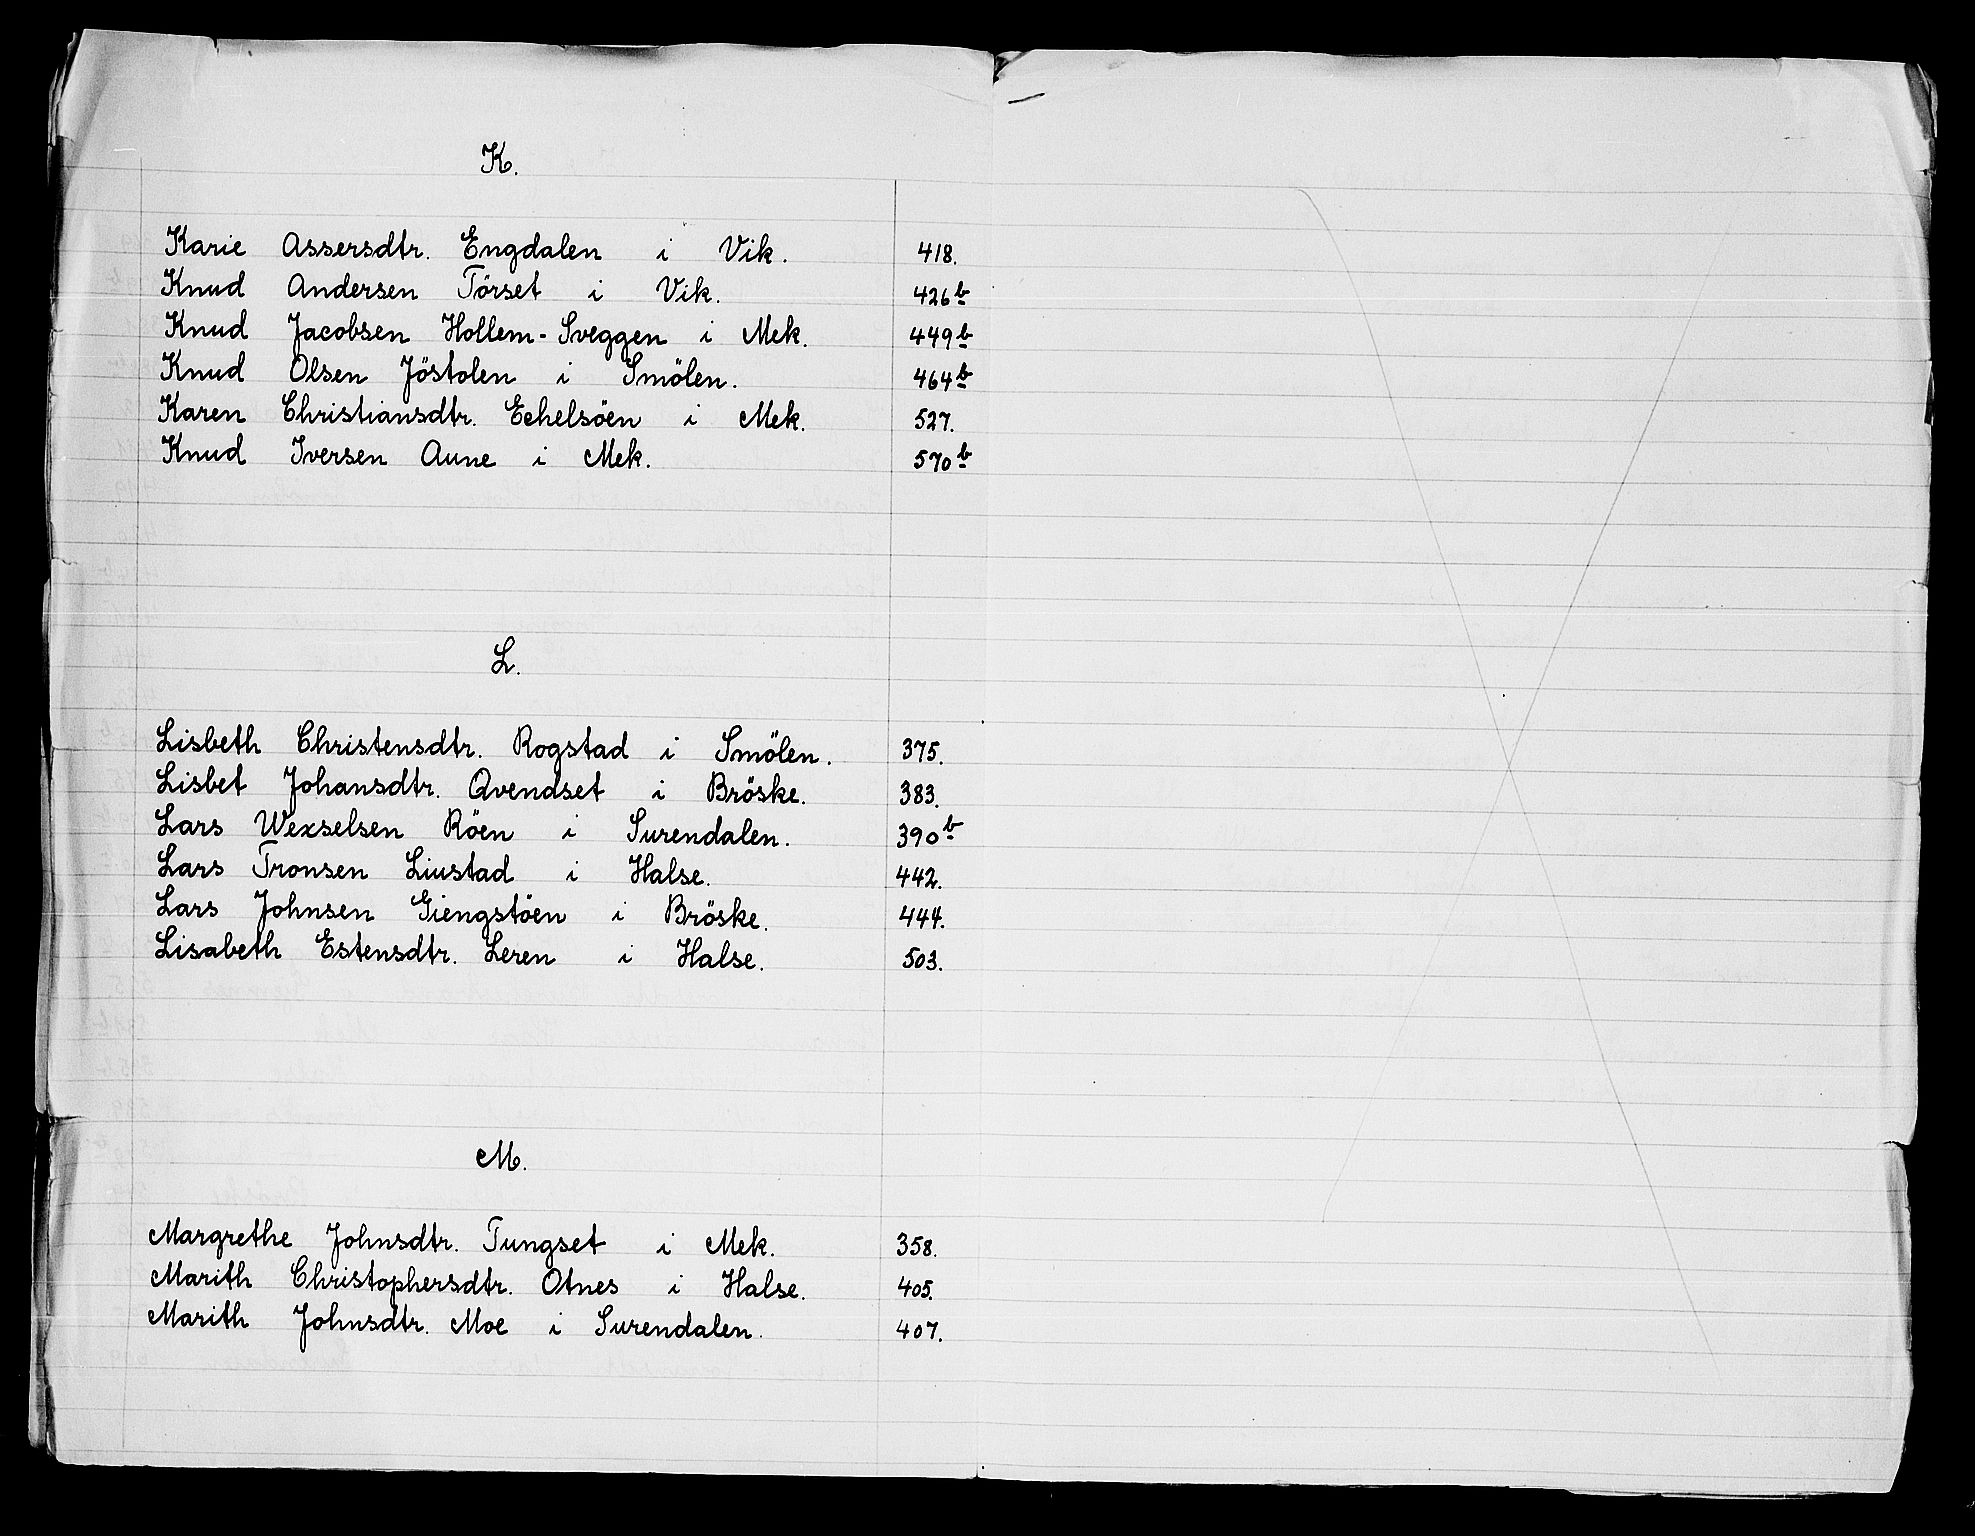 K.
Karie Assersdtr. Engdalen i Vik. 418.
Knud Andersen Törset i Vik. 426b
Knud Jacobsen Hollem-Sveggen i Mek. 449b
Knud Olsen Jöstolen i Smölen. 464b
Karen Christiansdtr. Echelsöen i Mek. 527.
Knud Iversen Aune i Mek. 570b
L.
Lisbeth Christensdtr. Rogstad i Smölen. 375.
Lisbet Johansdtr. Qvendset i Bröske. 383.
Lars Wexselsen Röen i Surendalen. 390b
Lars Tronsen Liustad i Halse. 442.
Lars Johnsen Giengstöen i Bröske. 444.
Lisabeth Estensdtr. Leren i Halse. 503.
M.
Margrethe Johnsdtr. Tungset i Mek. 358.
Marith Christophersdtr. Otnes i Halse. 405.
Marith Johnsdtr. Moe i Surendalen. 407.